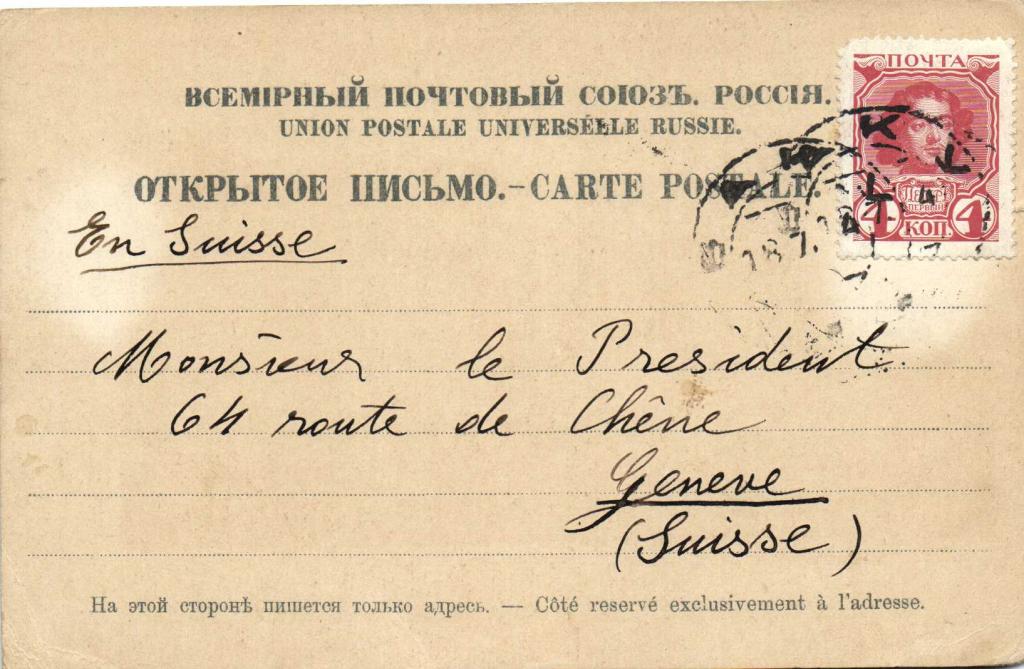 ПОЧТА
ВСЕМІРНЫЙ ПОЧТОВЫЙ СОЮЗЪ. РОССІЯ.
UNION POSTALE UNIVERSELLE RUSSIE.
ОТКРЫТОЕ ПИСЬМО.-CARTE POSTALE.
4 КОП. 4
18.7.
En Suisse
Monsieur le President
64 route de Chêne
Geneve
(Suisse)
На этой сторонѣ пишется только адресъ. — Côté reservé exclusivement à l'adresse.